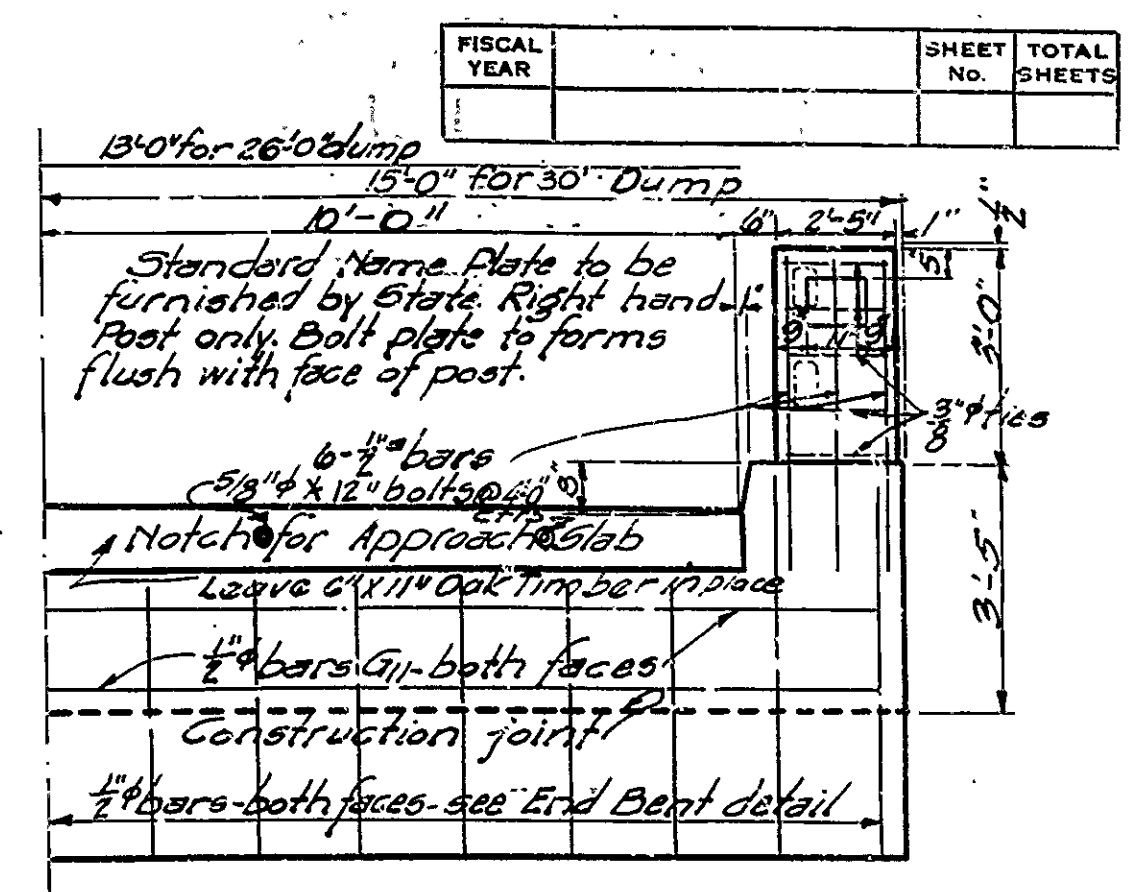 FISCAL YEAR
SHEET No.
TOTAL SHEETS
13'-0" for 26'-0" dump
15'-0" for 30' Dump
10'-0"
6"
2'-5"
1"
1/2"
Standard Name Plate to be
furnished by State. Right hand
Post only. Bolt plate to forms
flush with face of post.
1"
5"
9"
11"
9"
3'-0"
3/8"ϕ ties
6-1/2"ϕ bars
5/8"ϕ X 12" bolts @ 4'-0"
Ctrs.
8"
Notch for Approach Slab
Leave 6" X 11" Oak Timber in place
3'-5"
1/2"ϕ bars G11-both faces
Construction joint
1/2"ϕ bars-both faces-see End Bent detail